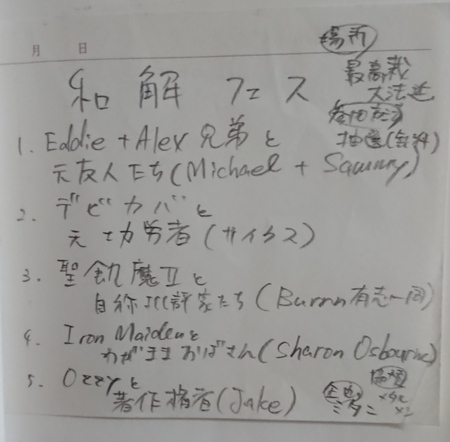 月 日
場所
最高裁
大法廷
和解フェス
抽選(無料)
1. Eddie + Alex 兄弟と
元友人たち(Michael + Sammy)
2. デビカバと
元功労者(サイクス)
3. 聖飢魔IIと
自称 評論家たち(Burrn 有志一同)
4. Iron Maidenと
わがままおばさん(Sharon Osbourne)
5. Ozzyと
著作権者(Jake)
企画
協賛